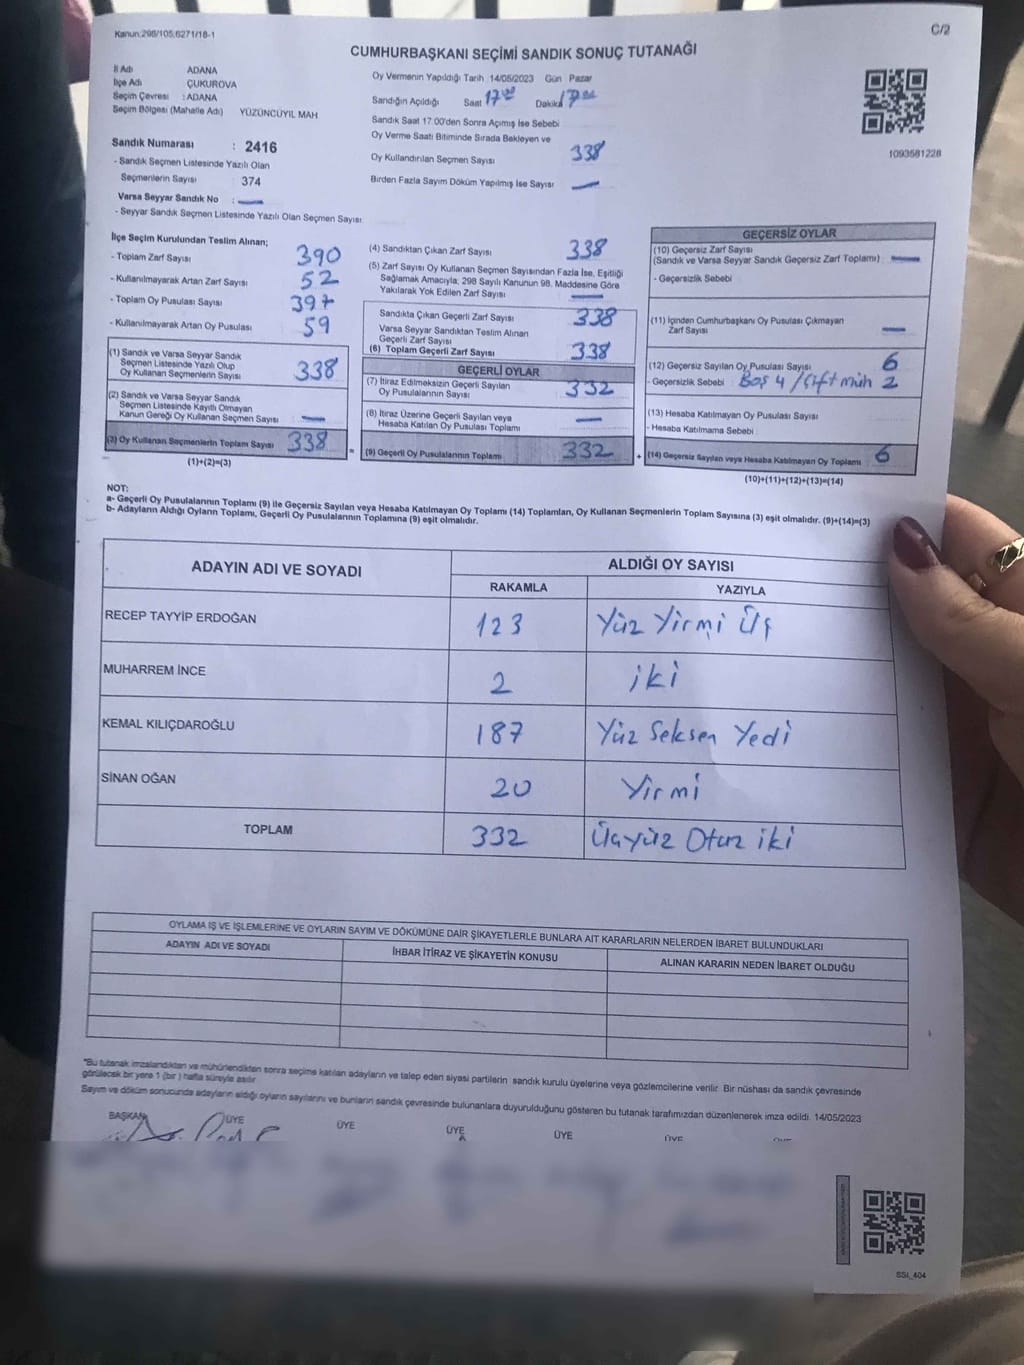 Kanun:298/105,6271/18-1
C/2
CUMHURBAŞKANI SEÇİMİ SANDIK SONUÇ TUTANAĞI
İl Adı ADANA
İlçe Adı ÇUKUROVA
Seçim Çevresi : ADANA
Seçim Bölgesi (Mahalle Adı) YÜZÜNCÜYIL MAH
Oy Vermenin Yapıldığı Tarih 14/05/2023 Gün Pazar
Sandığın Açıldığı Saat 17 00 Dakika 17 00
Sandık Saat 17:00'den Sonra Açımış İse Sebebi
Oy Verme Saati Bitiminde Sırada Bekleyen ve
Oy Kullandırılan Seçmen Sayısı 338
Birden Fazla Sayım Döküm Yapılmış İse Sayısı —
1093581228
Sandık Numarası : 2416
- Sandık Seçmen Listesinde Yazılı Olan
Seçmenlerin Sayısı : 374
Varsa Seyyar Sandık No : —
- Seyyar Sandık Seçmen Listesinde Yazılı Olan Seçmen Sayısı
İlçe Seçim Kurulundan Teslim Alınan;
- Toplam Zarf Sayısı 390
- Kullanılmayarak Artan Zarf Sayısı 52
- Toplam Oy Pusulası Sayısı 397
- Kullanılmayarak Artan Oy Pusulası 59
(1) Sandık ve Varsa Seyyar Sandık
Seçmen Listesinde Yazılı Olup
Oy Kullanan Seçmenlerin Sayısı 338
(2) Sandık ve Varsa Seyyar Sandık
Seçmen Listesinde Kayıtlı Olmayan
Kanun Gereği Oy Kullanan Seçmen Sayısı —
(3) Oy Kullanan Seçmenlerin Toplam Sayısı 338
(1)+(2)=(3)
(4) Sandıktan Çıkan Zarf Sayısı 338
(5) Zarf Sayısı Oy Kullanan Seçmen Sayısından Fazla İse, Eşitliği
Sağlamak Amacıyla; 298 Sayılı Kanunun 98. Maddesine Göre
Yakılarak Yok Edilen Zarf Sayısı —
Sandıkta Çıkan Geçerli Zarf Sayısı 338
Varsa Seyyar Sandıktan Teslim Alınan
Geçerli Zarf Sayısı
(6) Toplam Geçerli Zarf Sayısı 338
GEÇERLİ OYLAR
(7) İtiraz Edilmeksizin Geçerli Sayılan
Oy Pusulalarının Sayısı 332
(8) İtiraz Üzerine Geçerli Sayılan veya
Hesaba Katılan Oy Pusulası Toplamı —
= (9) Geçerli Oy Pusulalarının Toplamı 332 +
GEÇERSİZ OYLAR
(10) Geçersiz Zarf Sayısı
(Sandık ve Varsa Seyyar Sandık Geçersiz Zarf Toplamı) : —
- Geçersizlik Sebebi
(11) İçinden Cumhurbaşkanı Oy Pusulası Çıkmayan
Zarf Sayısı —
(12) Geçersiz Sayılan Oy Pusulası Sayısı 6
- Geçersizlik Sebebi Boş 4 / Çift müh 2
(13) Hesaba Katılmayan Oy Pusulası Sayısı
- Hesaba Katılmama Sebebi
(14) Geçersiz Sayılan veya Hesaba Katılmayan Oy Toplamı 6
(10)+(11)+(12)+(13)=(14)
NOT:
a- Geçerli Oy Pusulalarının Toplamı (9) ile Geçersiz Sayılan veya Hesaba Katılmayan Oy Toplamı (14) Toplamları, Oy Kullanan Seçmenlerin Toplam Sayısına (3) eşit olmalıdır. (9)+(14)=(3)
b- Adayların Aldığı Oyların Toplamı, Geçerli Oy Pusulalarının Toplamına (9) eşit olmalıdır.
ADAYIN ADI VE SOYADI ALDIĞI OY SAYISI
RAKAMLA YAZIYLA
RECEP TAYYİP ERDOĞAN 123 Yüz Yirmi Üç
MUHARREM İNCE 2 iki
KEMAL KILIÇDAROĞLU 187 Yüz Seksen Yedi
SİNAN OĞAN 20 Yirmi
TOPLAM 332 Üçyüz Otuz iki
OYLAMA İŞ VE İŞLEMLERİNE VE OYLARIN SAYIM VE DÖKÜMÜNE DAİR ŞİKAYETLERLE BUNLARA AİT KARARLARIN NELERDEN İBARET BULUNDUKLARI
ADAYIN ADI VE SOYADI İHBAR İTİRAZ VE ŞİKAYETİN KONUSU ALINAN KARARIN NEDEN İBARET OLDUĞU
*Bu tutanak imzalandıktan ve mühürlendikten sonra seçime katılan adayların ve talep eden siyasi partilerin sandık kurulu üyelerine veya gözlemcilerine verilir. Bir nüshası da sandık çevresinde
görülecek bir yere 1 (bir ) hafta süreyle asılır
Sayım ve döküm sonucunda adayların aldığı oyların sayılarını ve bunların sandık çevresinde bulunanlara duyurulduğunu gösteren bu tutanak tarafımızdan düzenlenerek imza edildi. 14/05/2023
BAŞKAN ÜYE ÜYE ÜYE ÜYE ÜYE
SSİ_404